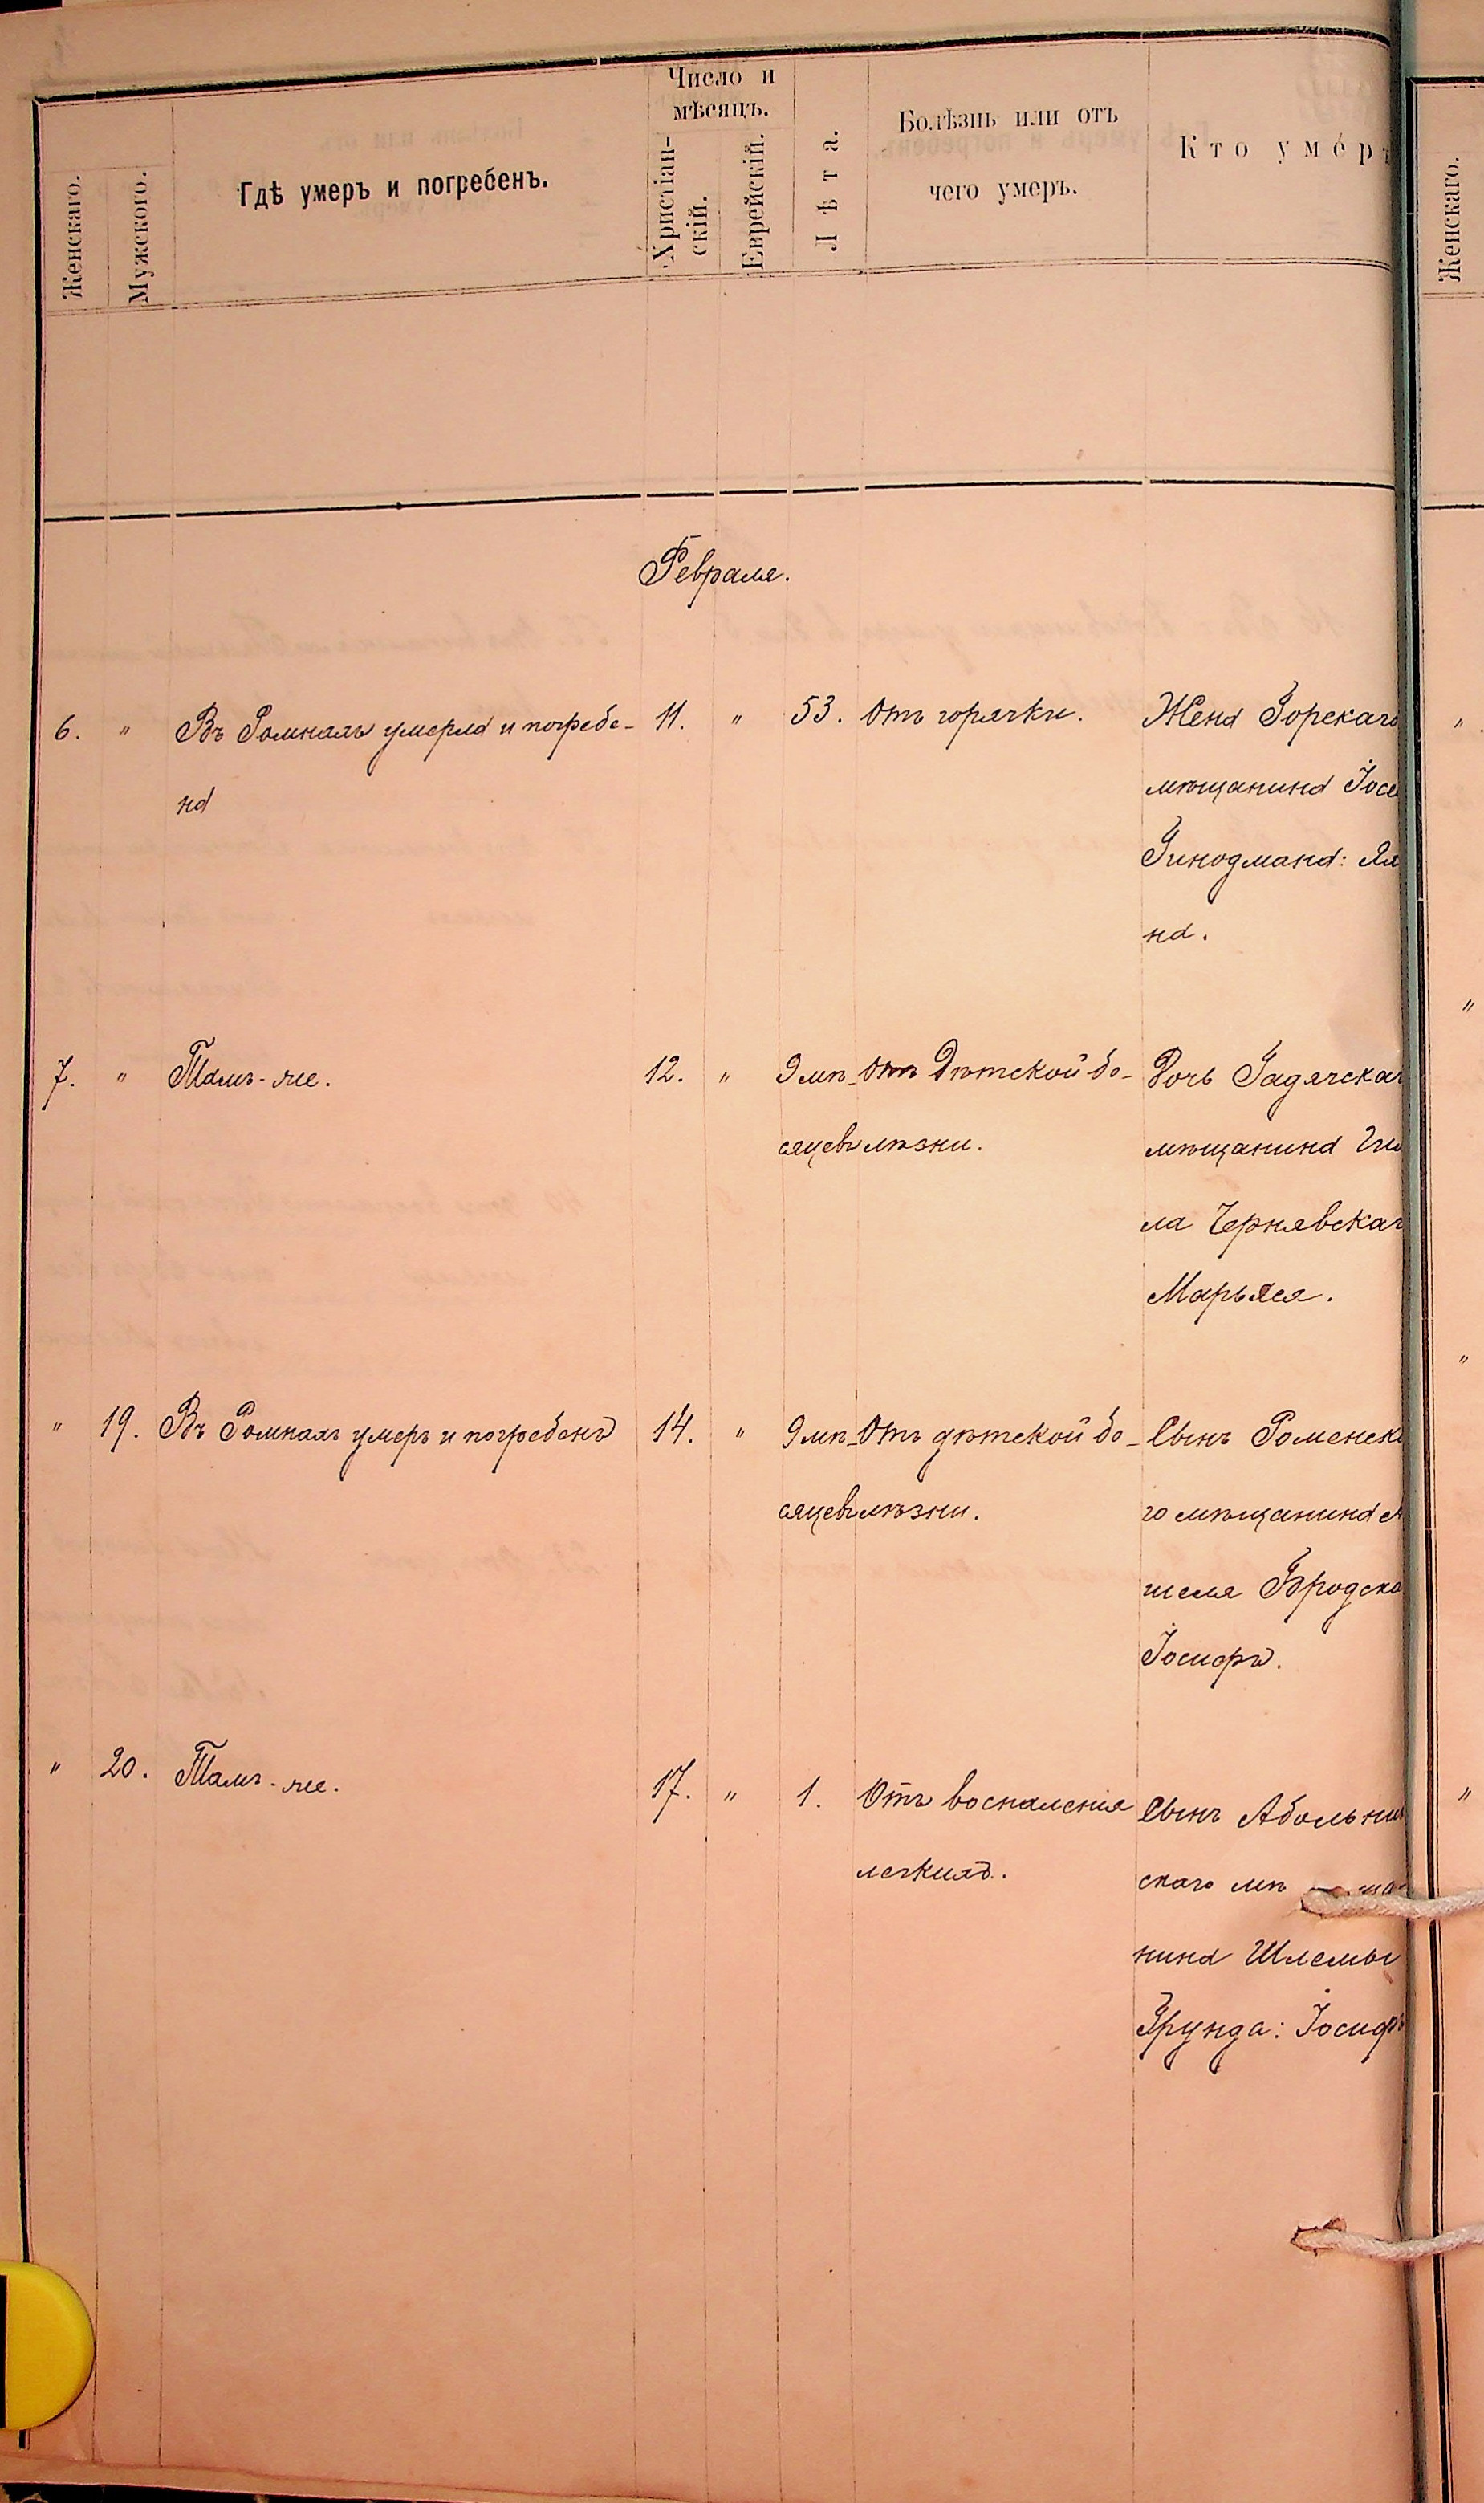 Женскаго.
Мужского.
Гдѣ умеръ и погребенъ.
Число и
мѣсяцъ.
Христіан-
скій.
Еврейскій.
Лѣта.
Болѣзнь или отъ
чего умеръ.
Кто умеръ
Женскаго.
Февраля.
6. " Въ Ромнахъ умерла и погребе- 11. " 53. Отъ горячки. Жена Горскаго "
на мѣщанина Іосе
на.
7. " Тамъ-же. 12. " 9 мѣ- Отъ Дѣтской бо- Дочь Гадячскаг "
сяцевъ лѣзни. мѣщанина
ла Чернявскаг
Марьяся.
" 19. Въ Ромнахъ умеръ и погребенъ 14. " 9 мѣ- Отъ дѣтской бо- Сынъ Роменска "
сяцевъ лѣзни. го мѣщанина
шеля Бродска
Іосифъ.
" 20. Тамъ-же. 17. " 1. Отъ воспаленія Сынъ "
легкихъ. скаго мѣ - ща-
нина Шлемы
Грунда: Іосифъ